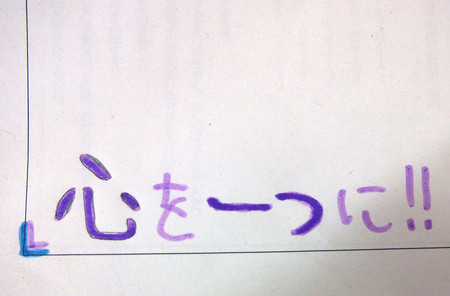 心を一つに!!